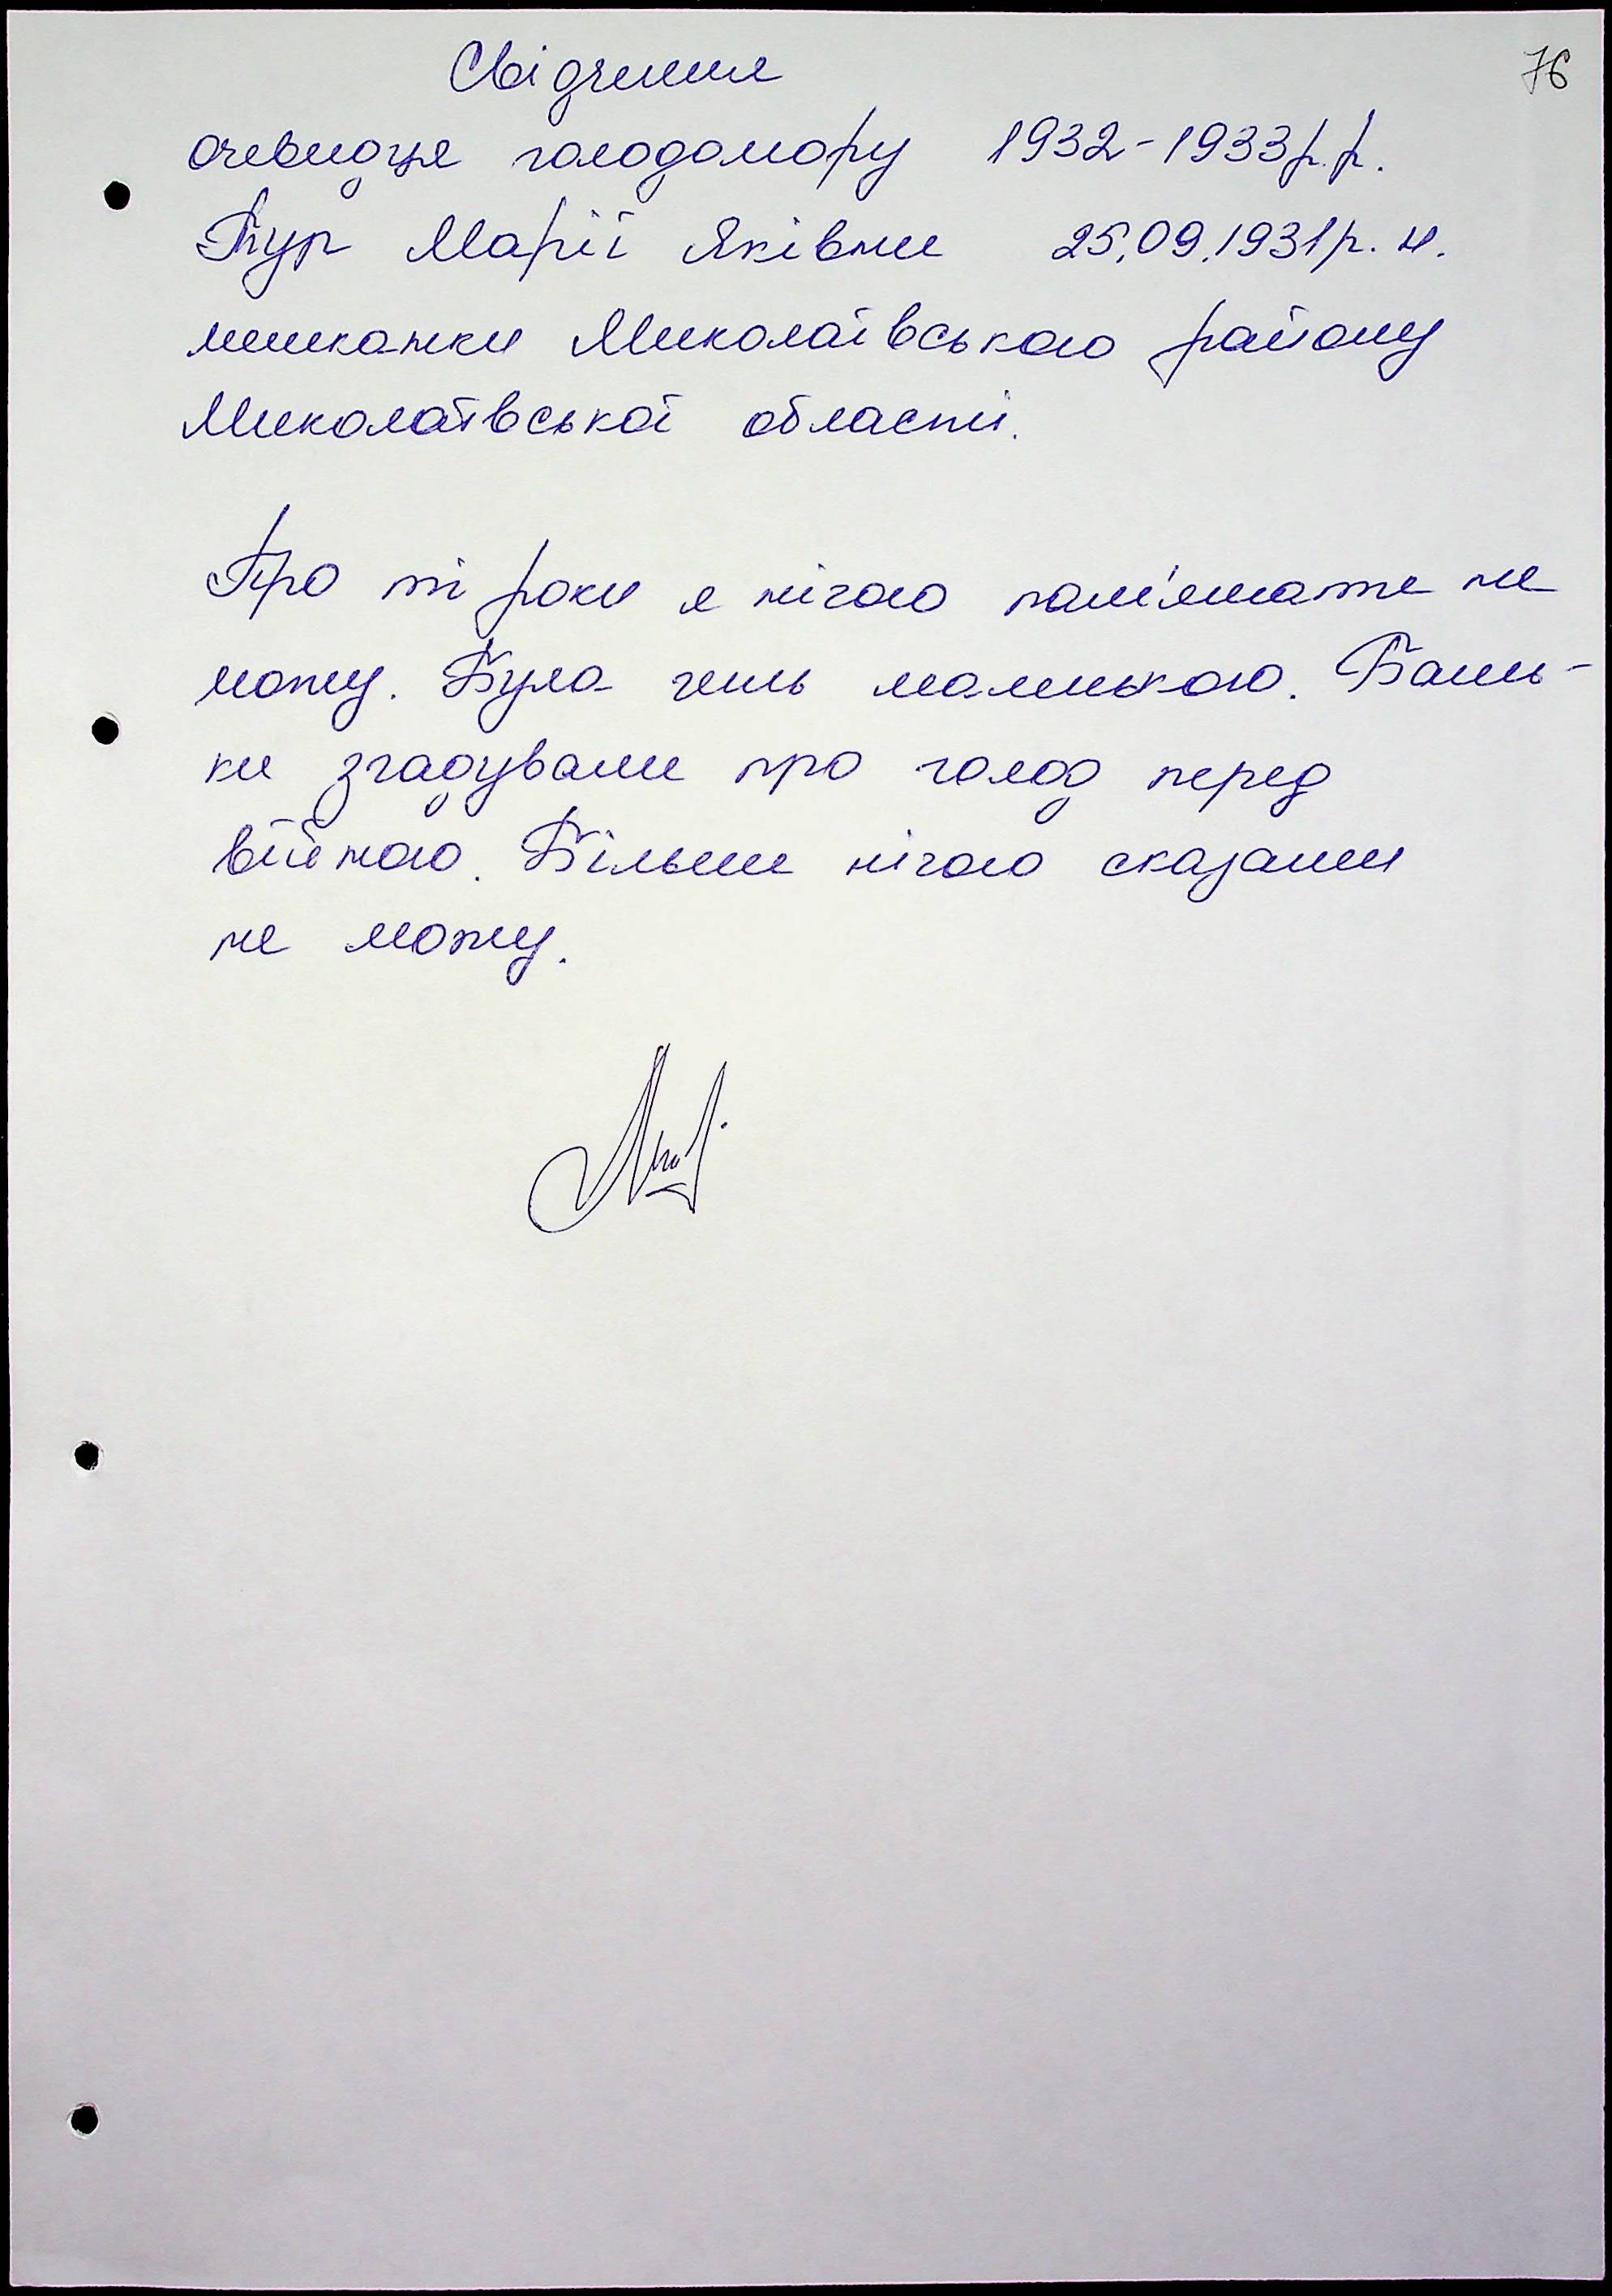 76
Свідчення
очевидця голодомору 1932-1933р.р.
Тур Марії Яківни 25.09.1931р. н.
мешканки Миколаївського району
Миколаївської області.
Про ті роки я нічого пам'ятати не
можу. Була геть маленькою. Бать-
ки згадували про голод перед
війною. Більше нічого сказати
не можу.